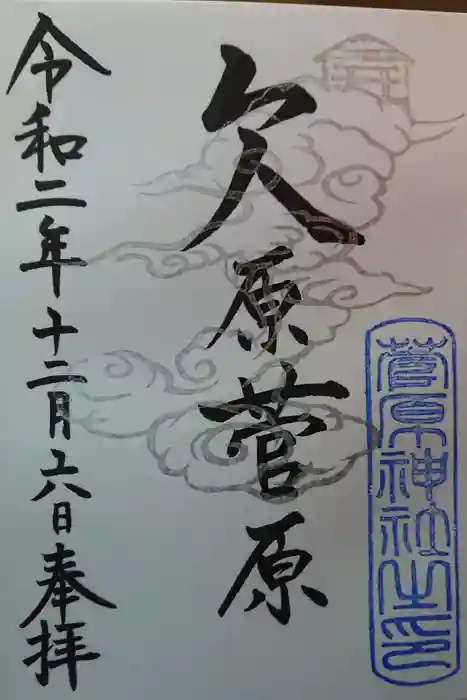 菅原神社之印
欠原菅原
令和二年十二月十六日奉拝